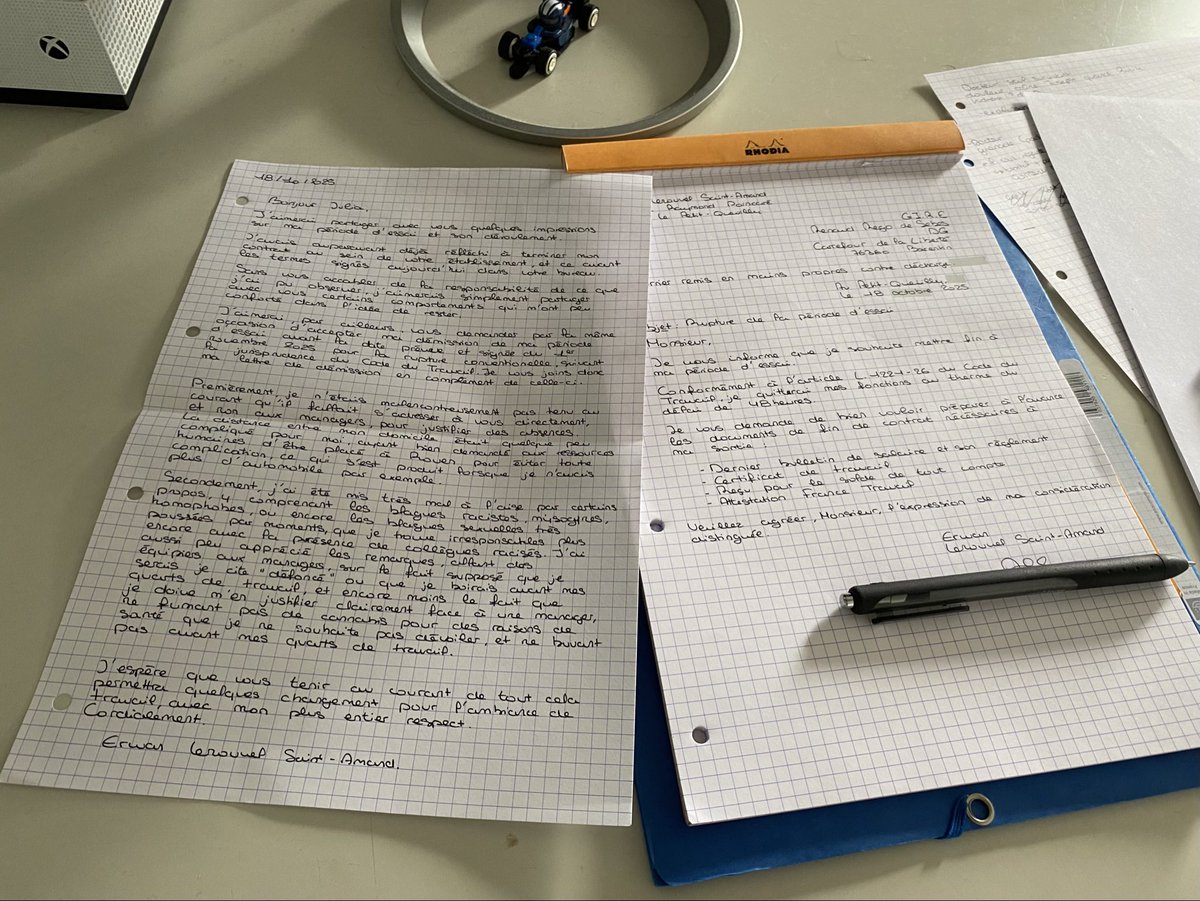 18/10/2025
Bonjour Julia,
J'aimerai partager avec vous quelques impressions
sur ma période d'essai et son déroulement.
J'aurais auparavant déjà réfléchi à terminer mon
contrat au sein de votre établissement, et ce avant
les termes signés aujourd'hui dans votre bureau.
Sans vous accabler de la responsabilité de ce que
j'ai pu observer, j'aimerais simplement partager
avec vous certains comportements qui m'ont peu
conforté dans l'idée de rester.
J'aimerai par ailleurs vous demander par la même
occasion d'accepter ma démission de ma période
d'essai avant la date prévue et signée du 1er
novembre 2025 pour la rupture conventionelle, suivant
la jurisprudence du Code du Travail. Je vous joins donc
ma lettre de démission en complément de celle-ci.
Premièrement, je n'étais malencontreusement pas tenu au
courant qu'il fallait s'adresser à vous directement,
et non aux managers, pour justifier des absences.
La distance entre mon domicile était quelque peu
compliqué pour moi, ayant bien demandé aux ressources
humaines d'être placé à Rouen pour éviter toute
complication, ce qui s'est produit lorsque je n'avais
plus d'automobile par exemple.
Secondement, j'ai été mis très mal à l'aise par certains
propos, y comprenant les blagues racistes, misogynes,
homophobes, ou encore les blagues sexuelles très
poussées par moments, que je trouve irresponsables plus
encore avec la présence de collègues racisés. J'ai
aussi peu apprécié les remarques, allant des
équipiers aux managers, sur le fait supposé que je
serais je cite "défoncé" ou que je boirais avant mes
quarts de travail, et encore moins le fait que
je doive m'en justifier clairement face à une manager,
ne fumant pas de cannabis pour des raisons de
santé que je ne souhaite pas dévoiler, et ne buvant
pas avant mes quarts de travail.
J'espère que vous tenir au courant de tout cela
permettra quelques changement pour l'ambiance de
travail, avec mon plus entier respect.
Cordialement.
Erwan Lerouvel Saint-Amand.
RHODIA
Lerouvel Saint-Amand
Raymond Poincaré
Le Petit-Quevilly
G.I.R.E
Renaud Rego de Sebes
DG
Carrefour de la Liberté
76360 Barentin
rrier remis en mains propres contre décharge
Au Petit-Quevilly
Le 18 octobre 2025
bjet: Rupture de la période d'essai
Monsieur,
Je vous informe que je souhaite mettre fin à
ma période d'essai.
Conformément à l'article L.-122-1-26 du Code du
Travail, je quitterai mes fonctions au therme du
délai de 48 heures
Je vous demande de bien vouloir préparer à l'avance
les documents de fin de contrat nécessaires à
ma sortie
- Dernier bulletin de salaire et son règlement
- Certificat de travail
- Reçu pour le solde de tout compte
- Attestation France Travail
Veuillez agréer, Monsieur, l'expression de ma considération
distinguée.
Erwan
Lerouvel Saint-Amand